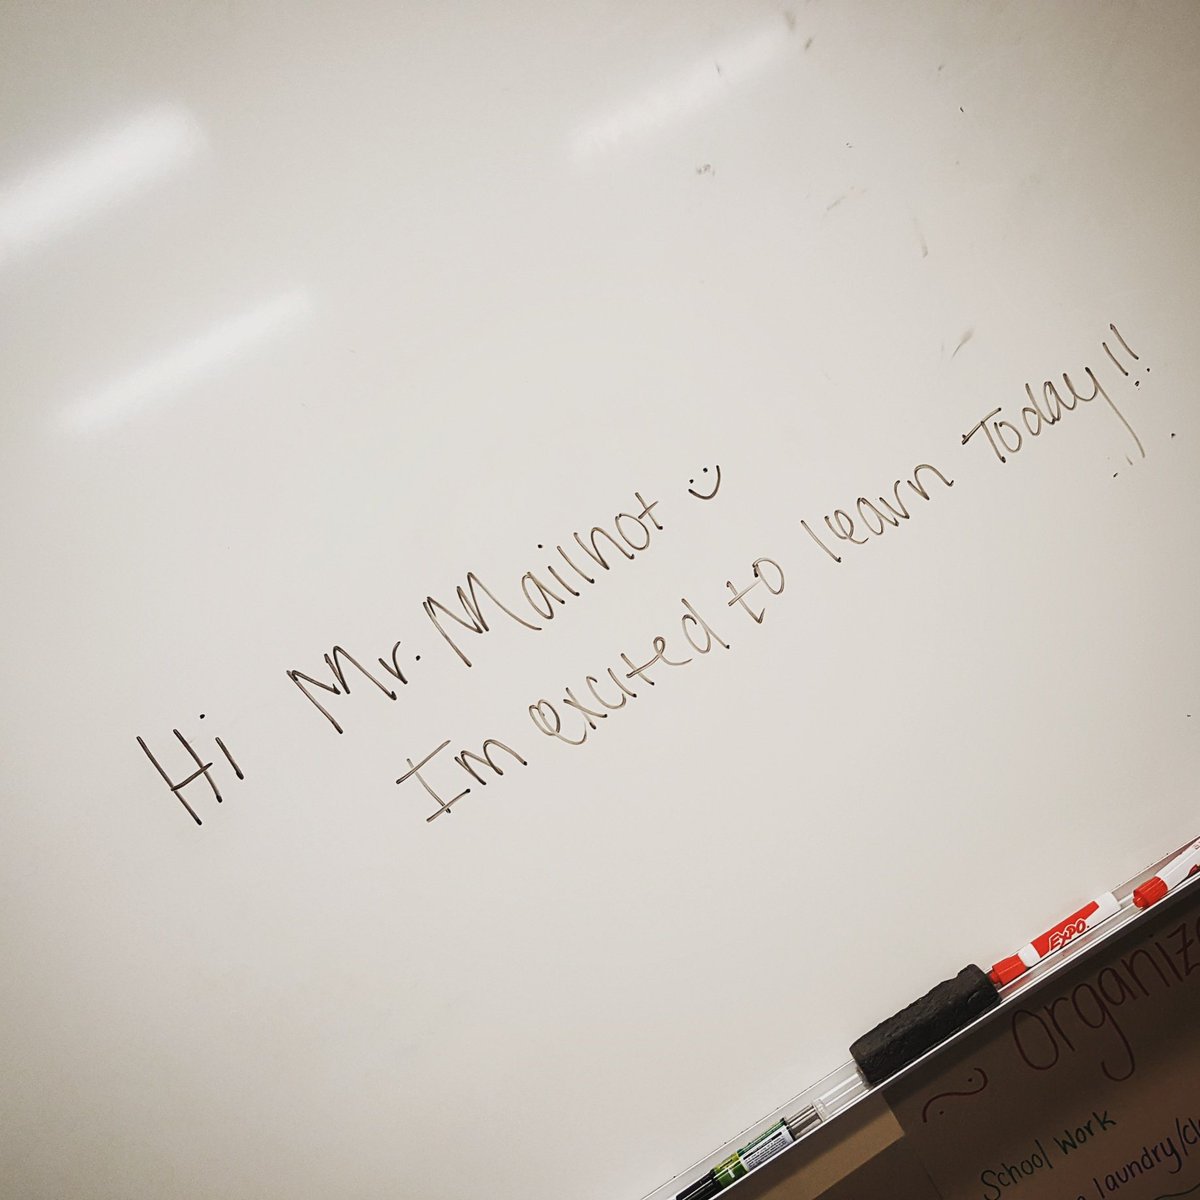 Hi Mr. Mailnot
Im excited to learn Today!!
EXPO
School Work
laundry/